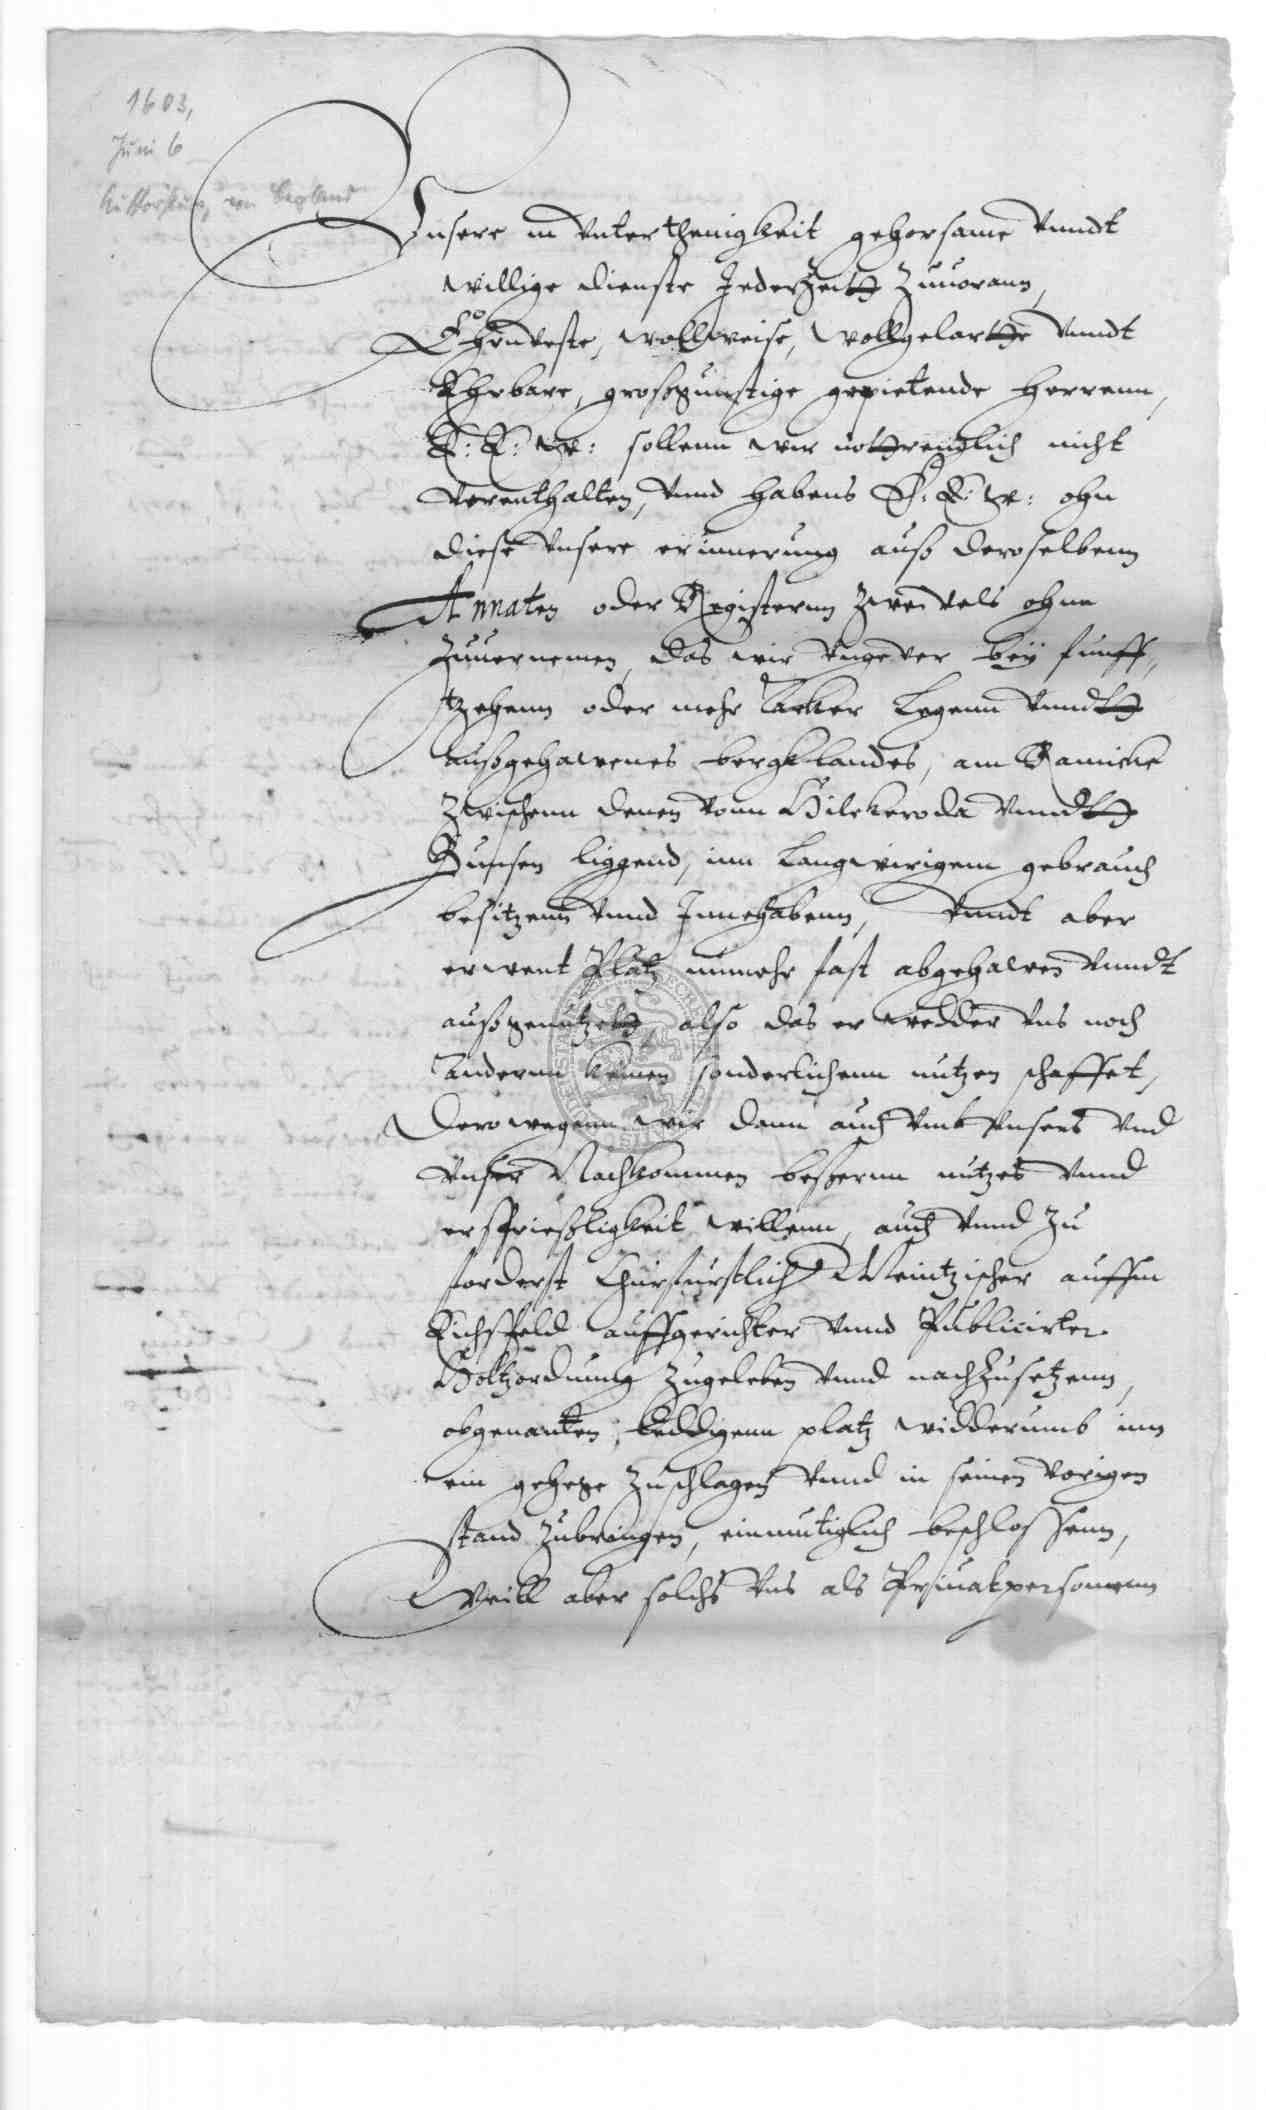 1603,
Juni 6
Aufforstung von Bergland
Unsere in unterthenigkeit gehorsame unndt
willige dienste Jederzeitt Zuuorann,
Ehrnveste, wollweise, wollgelarthe unndt
Ehrbare, großgunstige gepietende Herrenn,
E: E: W: sollenn wir nothrenglich nicht
verenthalten, unnd habens E: E: W: ohn
diese unsere erinnerung auß deroselbenn
Annaten oder Registernn zweivels ohne
Zuuernemen, das wir ungever bey funff,
tzehenn oder mehr Acker Legenn unndt
außgehawenes bergklandes, am
zwischenn denen vonn Hilkeroda unndt
liggend, inn langwirigem gebrauch
besitzenn unnd Innehabenn, unndt aber
erwent Platz nunmehr fast abgehawen unndt
außgenutzett, also das er wedder uns noch
Andernn keinen sonderlichenn nutzen schaffet,
Derowegenn wir dann auch umb unsers und
unser Nachkommen bessernn nutzes unnd
ersprießligkeit willenn, auch unnd zu
forderst Churfurstlich Meintzischer auffm
Eichsfeld auffgerichter unnd Publicirter
Holtzordnung zugeleben unnd nachzusetzenn,
obgenanten leddigenn platz widderumb inn
ein gehege zuschlagen unnd in seinen vorigen
stand zubringen, einmutiglich beschlossenn,
Weill aber solchs uns als Priuatpersonenn